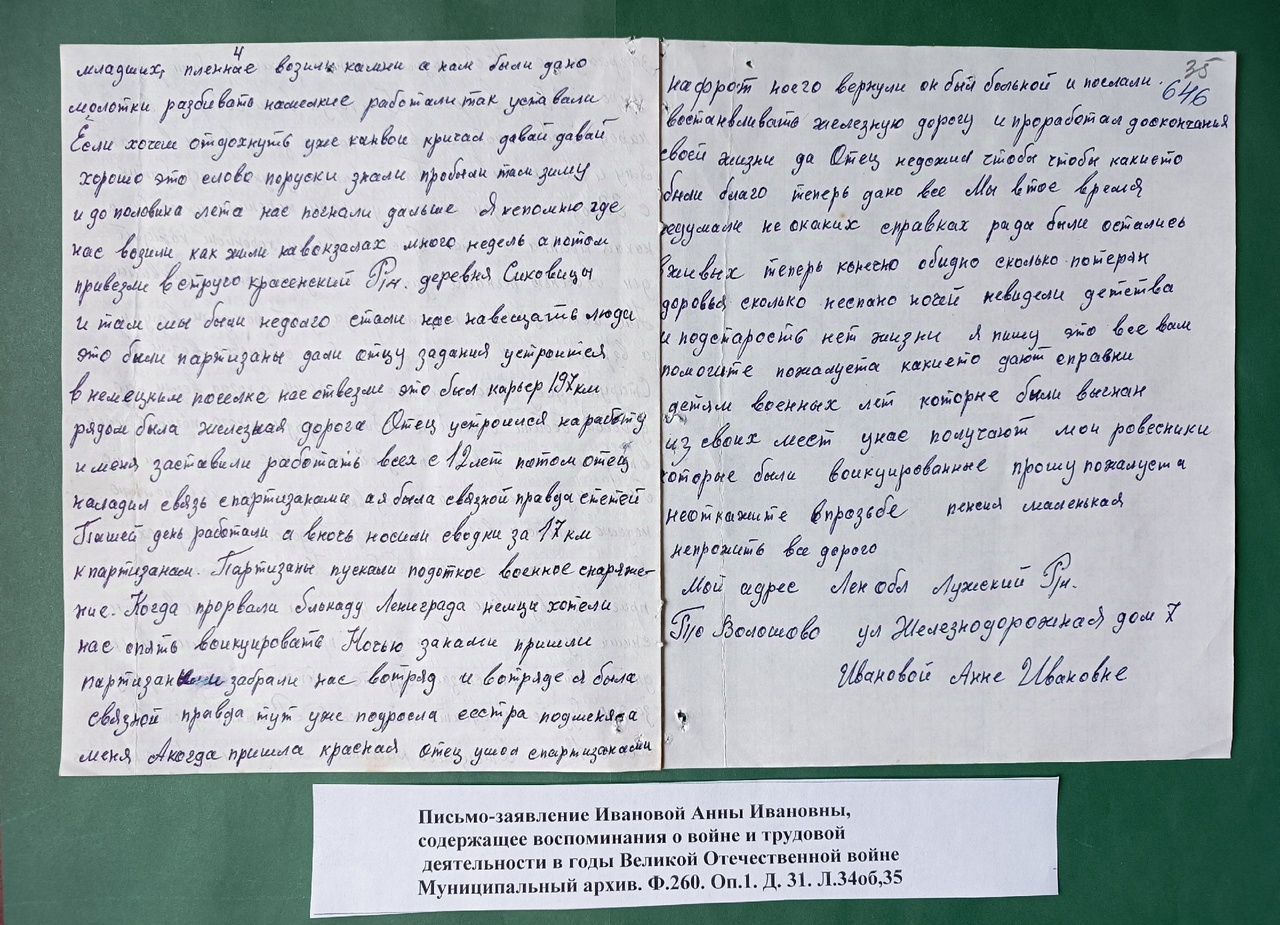 4
младших, пленнае возили камни а нам были дано
молотки разбивать намелкие работали так уставали
Если хочеш отдохнуть уже канвои кричал давай давай
хорошо это слово поруски знали пробыли там зиму
и до половина лета нас погнали дальше Я непомню где
нас возили как жили навокзалах много недель а потом
привезли в струго красенский Р/н. деревня Сиковицы
и там мы были недолго стали нас навещать люди
это были партизаны дали отцу задания устроится
в немецким поселке нас отвезли это был карьер 197 км
рядом была железная дорога Отец устроился наработу
и меня заставили работать всех с 12 лет потом отец
наладил связь спартизанами а я была связной правда стетей
Пашей день работали а вночь носили сводки за 17 км
к партизанам. Партизаны пускали подоткос военное снаряже-
ние. Когда прорвали блокаду Ленинграда немцы хотели
нас опять воикуировать Ночью занами пришли
партизаны и забрали нас вотряд и вотряде я была
связной правда тут уже подросла сестра подменяла
меня Акогда пришла красная отец ушол спартизанами
35
646
нафрот ноего вернули он был больной и послали
востанвливать железную дорогу и проработал доскончания
своей жизни да Отец недожил чтобы чтобы какието
были благо теперь дано все Мы втое время
недумали не окаких справках рада были остались
вживых теперь конечно обидно сколько потерян
доровья сколько неспано ночей невидели детства
и подстарость нет жизни я пишу это все вам
помогите пожалуста какието дают справки
детям военных лет которые были выснан
из своих мест унас получают мои ровесники
которые были воикуированные прошу пожалуста
неоткажите впрозьбе пенсия маленькая
непрожить все дорого
Мой адрес Лен обл Лужский Р/н.
П/о Волошово ул Железнодорожная дом 7
Ивановой Анне Ивановне
Письмо-заявление Ивановой Анны Ивановны,
содержащее воспоминания о войне и трудовой
деятельности в годы Великой Отечественной войне
Муниципальный архив. Ф.260. Оп.1. Д. 31. Л.34об,35